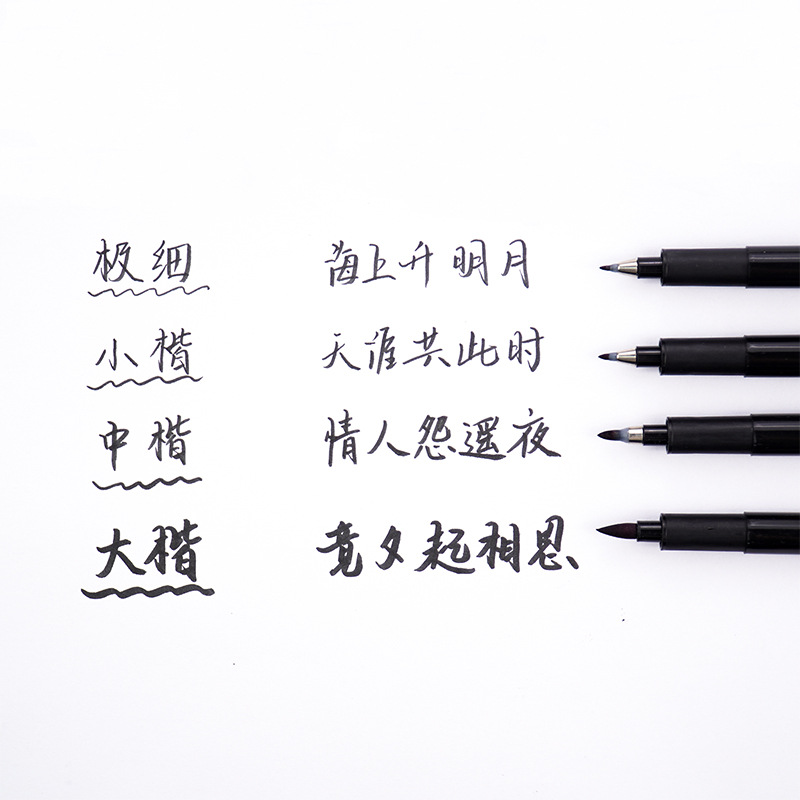 极细 海上升明月
小楷 天涯共此时
中楷 情人怨遥夜
大楷 竟夕起相思